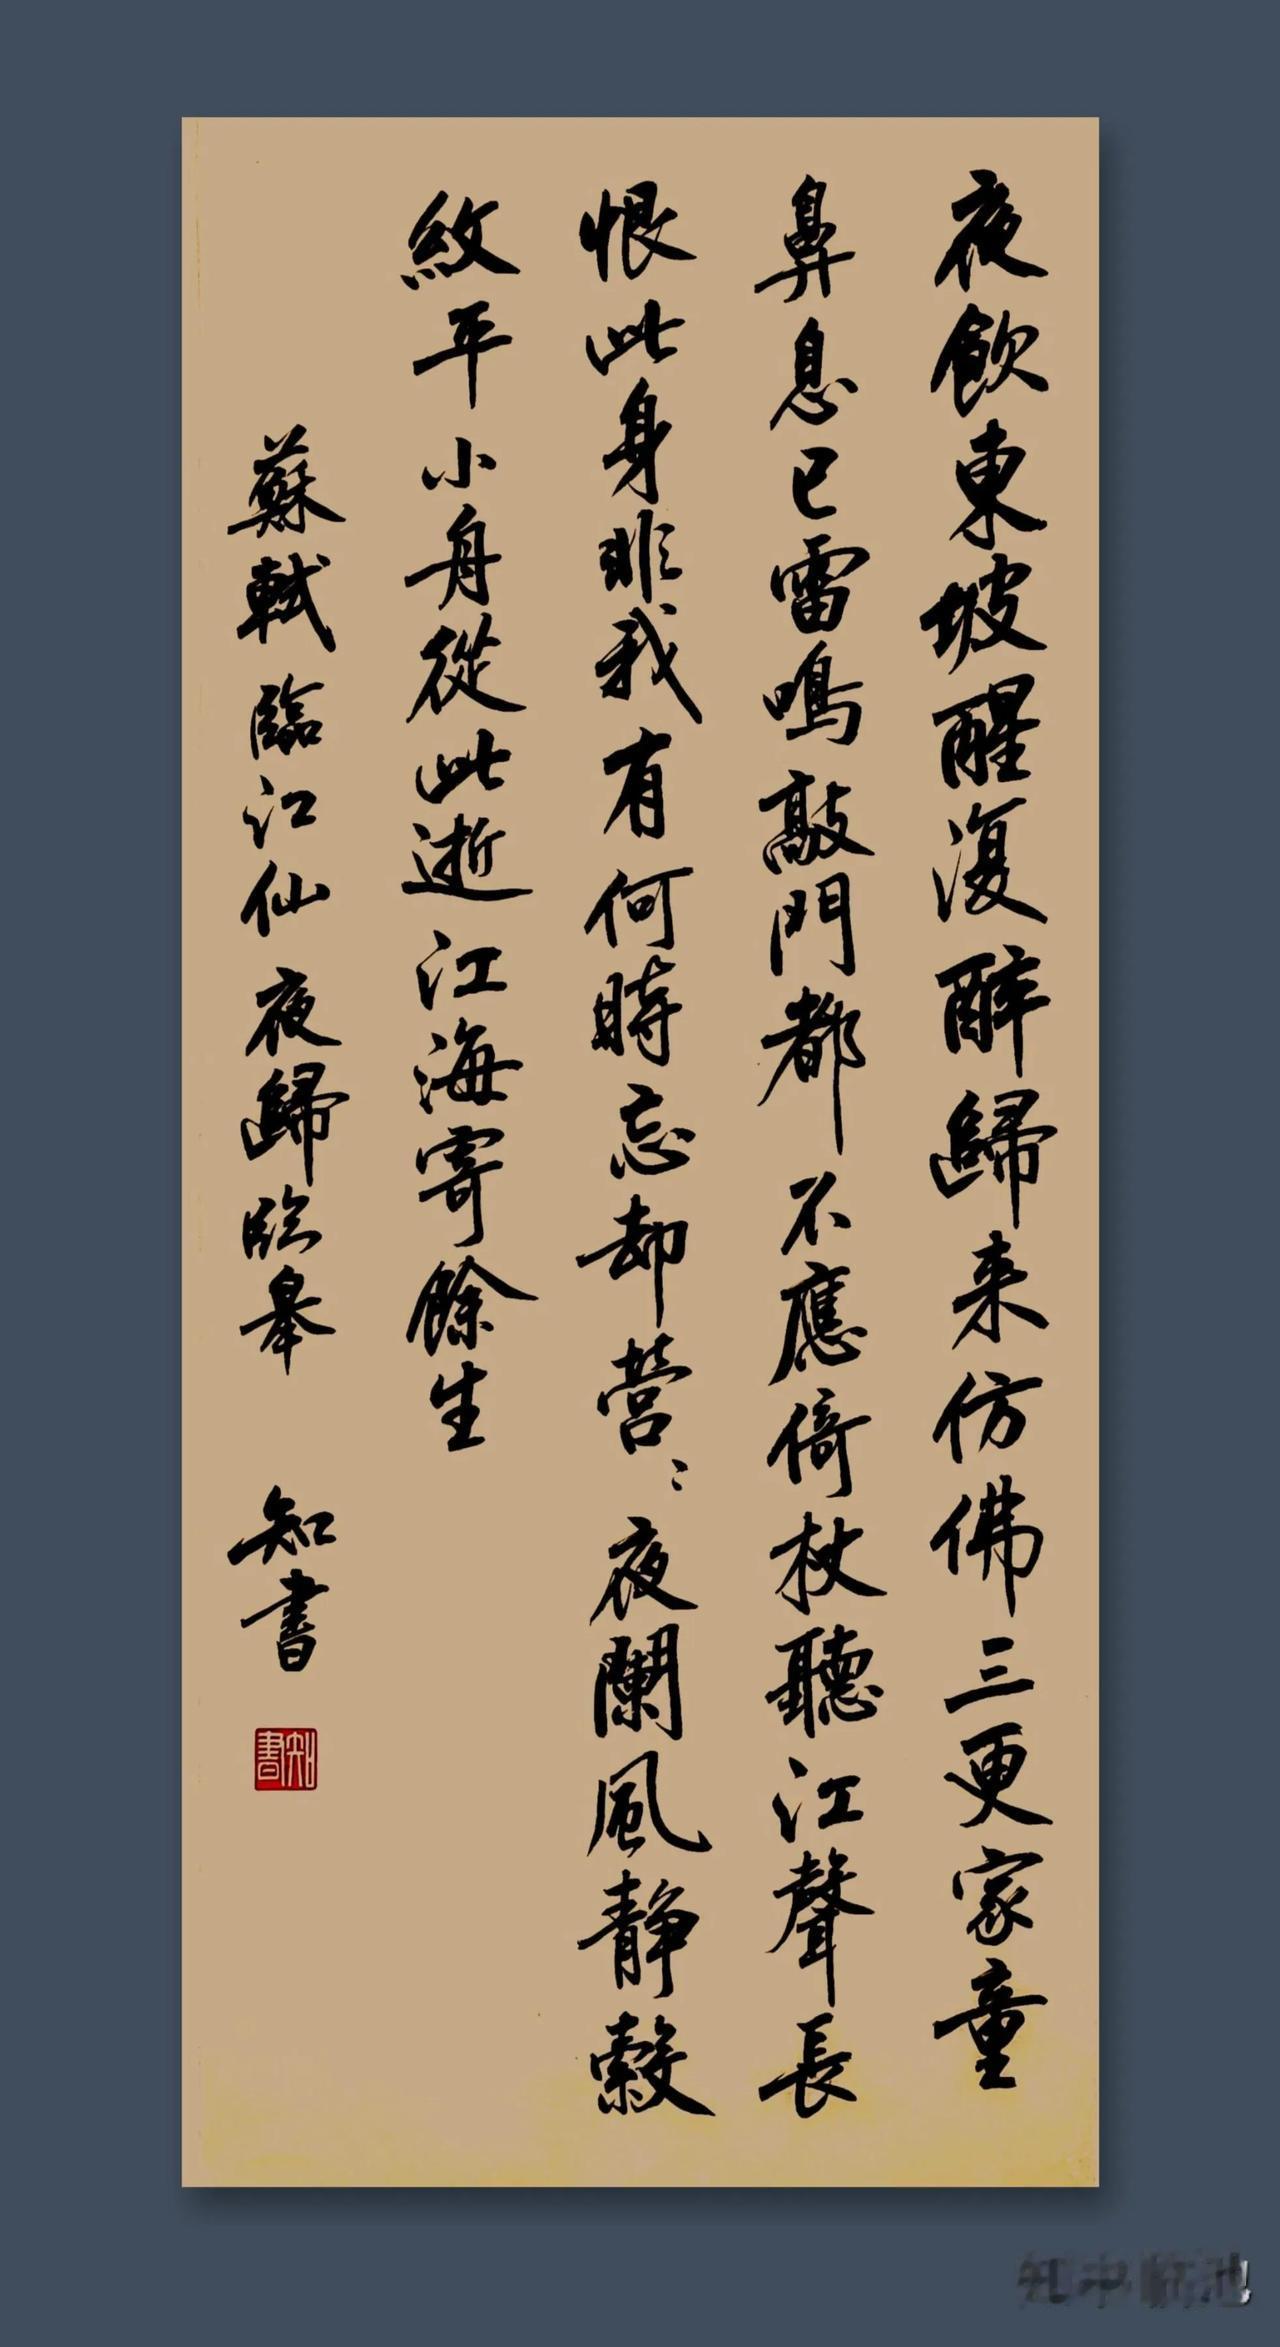 夜飲東坡醒復醉歸来仿佛三更家童
鼻息已雷鳴敲門都不應倚杖聽江聲長
恨此身非我有何時忘却營〻夜闌風静縠
紋平小舟從此逝江海寄餘生
蘇軾臨江仙夜歸臨皋 知書
知書
知书临池